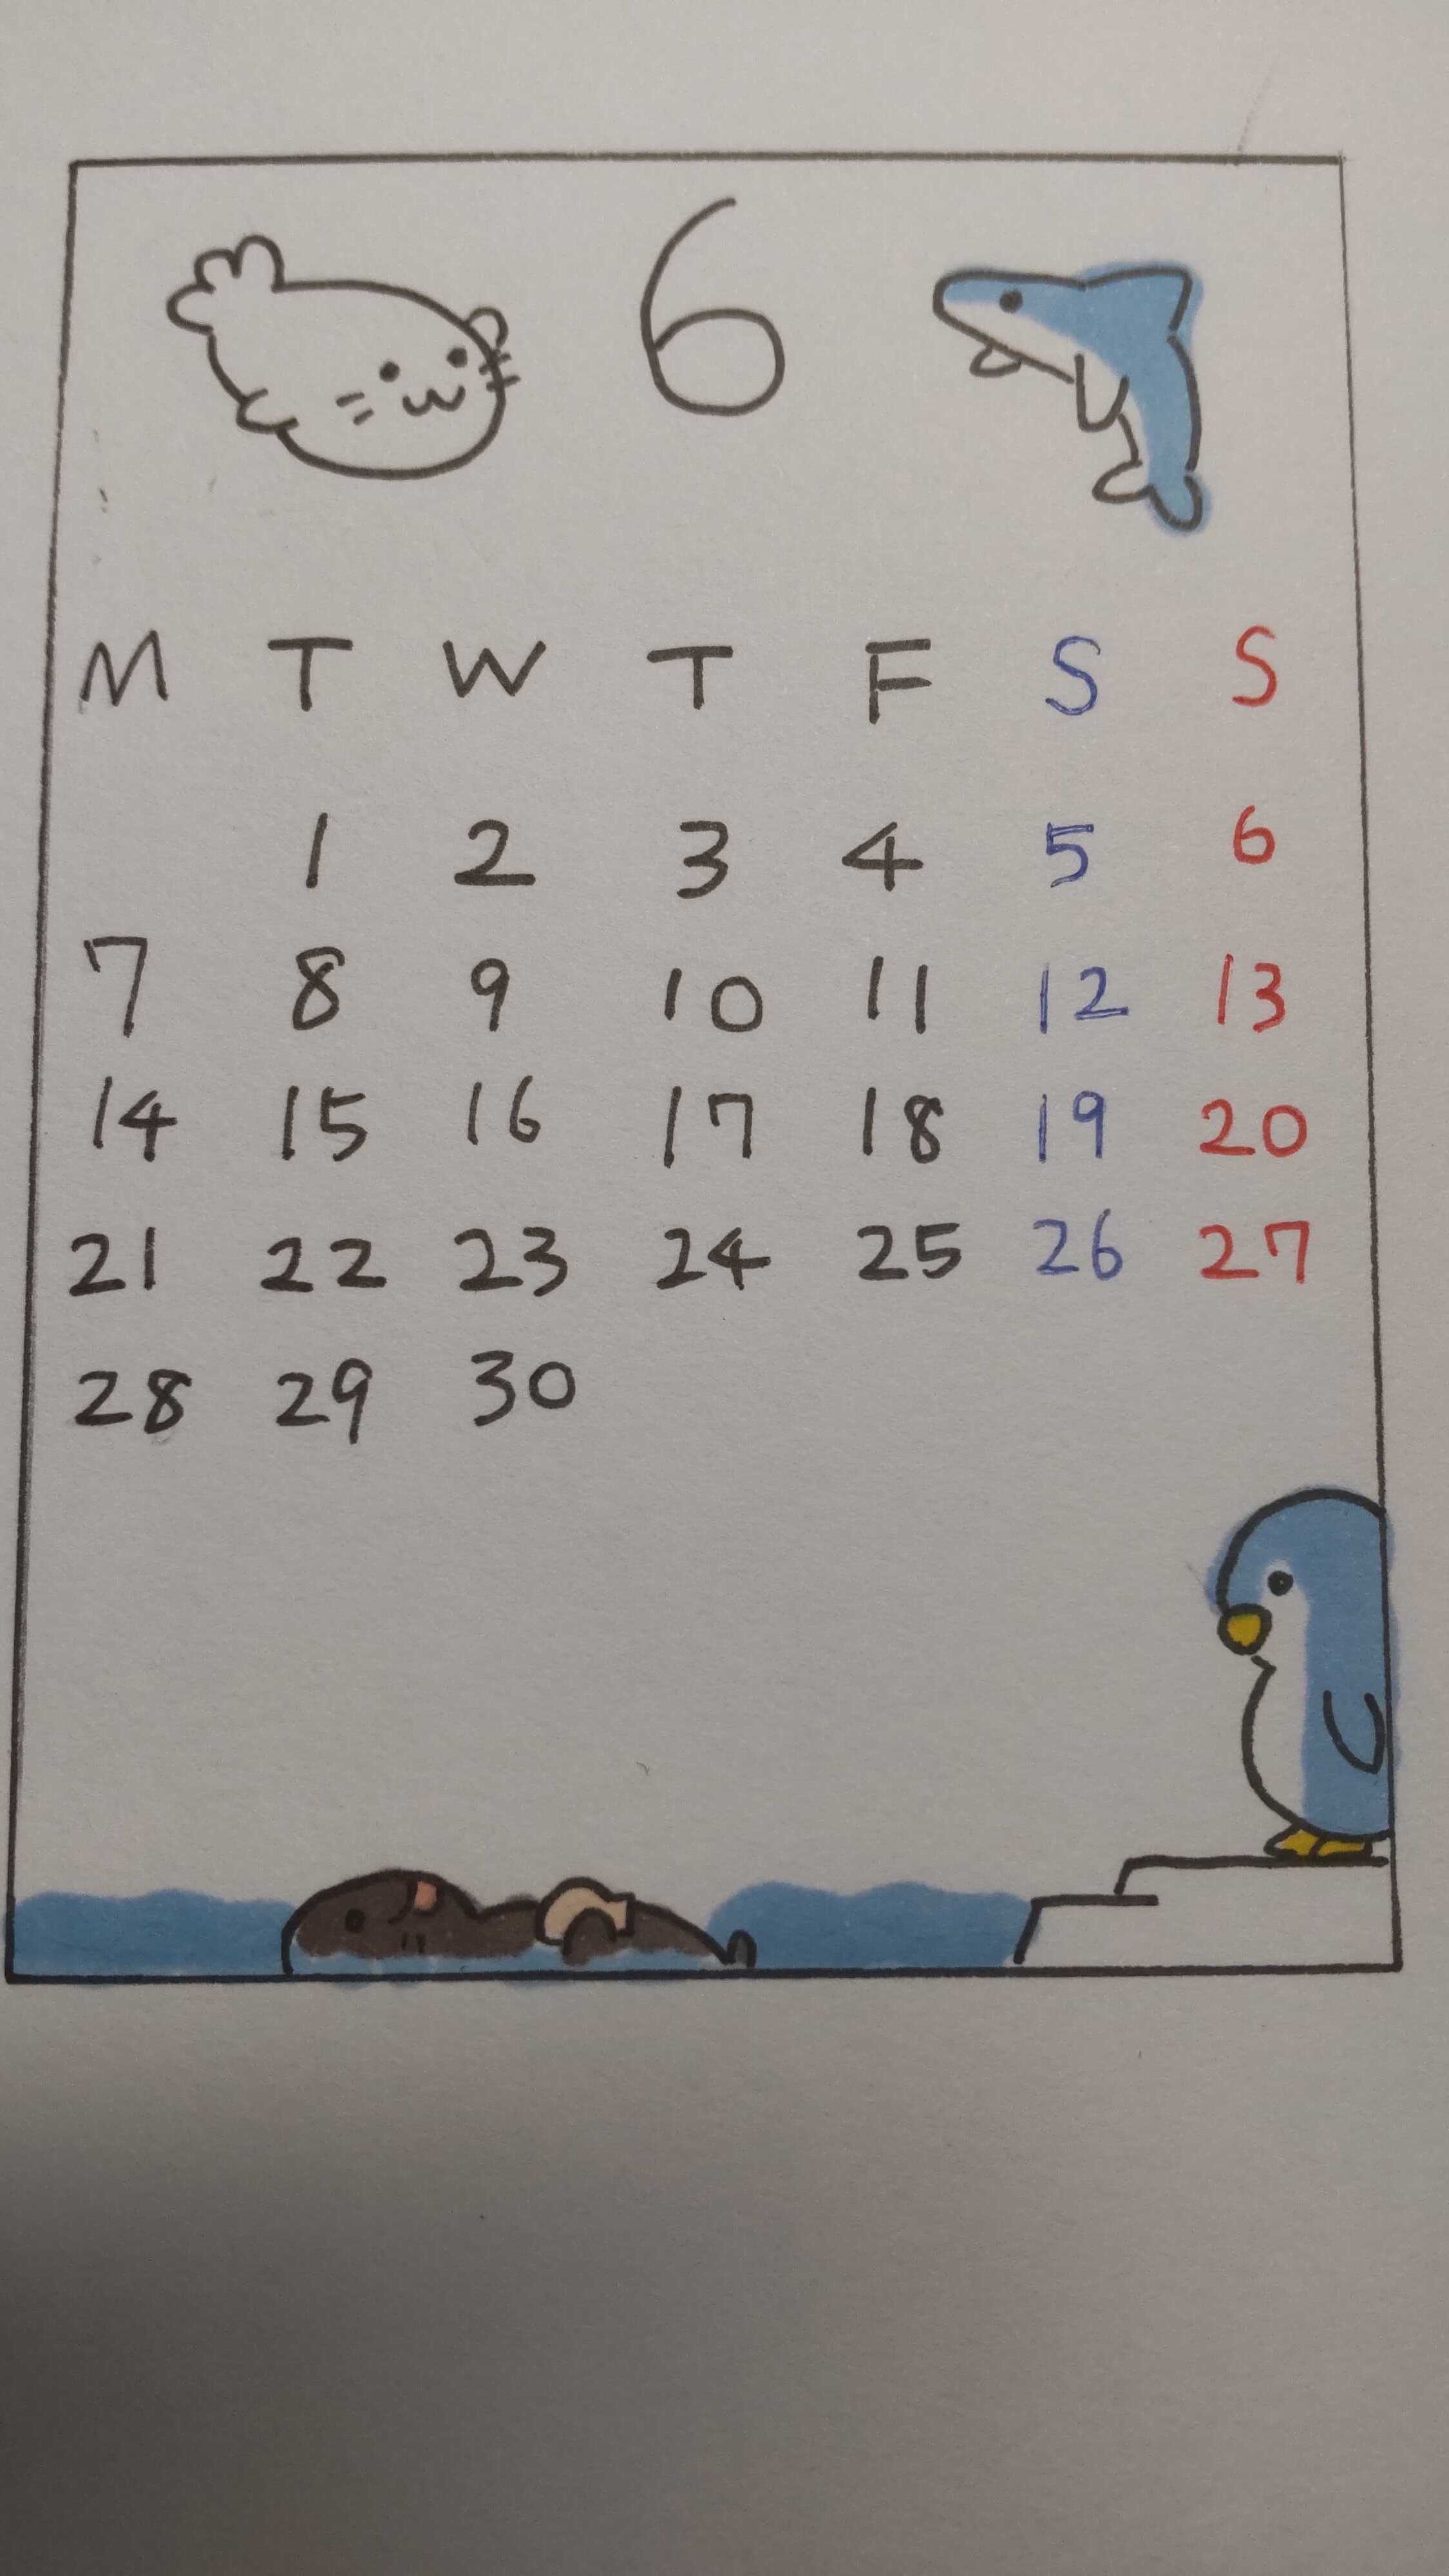 6
M T W T F S S
1 2 3 4 5 6
7 8 9 10 11 12 13
14 15 16 17 18 19 20
21 22 23 24 25 26 27
28 29 30